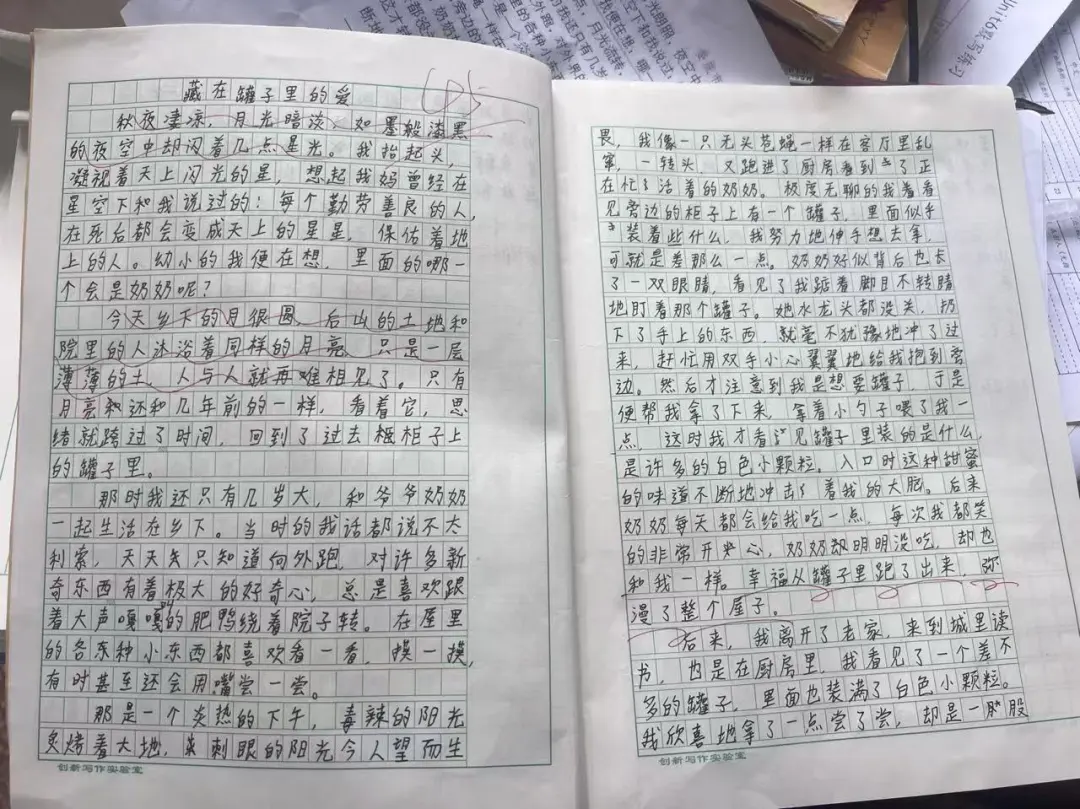 藏在罐子里的爱
秋夜凄凉,月光暗淡,如墨般漆黑
的夜空中却闪着几点星光。我抬起头,
凝视着天上闪光的星,想起我妈曾经在
星空下和我说过的:每个勤劳善良的人,
在死后都会变成天上的星星,保佑着地
上的人。幼小的我便在想,里面的哪一
个会是奶奶呢?
今天乡下的月很圆,后山的土地和
院里的人沐浴着同样的月亮,只是一层
薄薄的土,人与人就再难相见了。只有
月亮和还和几年前的一样,看着它,思
绪就跨过了时间,回到了过去柜子上
的罐子里。
那时我还只有几岁大,和爷爷奶奶
一起生活在乡下。当时的我话都说不大
利索,天天只知道向外跑,对许多新
奇东西有着极大的好奇心,总是喜欢跟
着大声嘎嘎的肥鸭绕着院子转。在屋里
的各种小东西都喜欢看一看,摸一摸,
有时甚至还会用嘴尝一尝。
那是一个炎热的下午,毒辣的阳光
炙烤着大地,刺眼的阳光令人望而生
创新写作实验室
畏,我像一只无头苍蝇一样在客厅里乱
窜,一转头,又跑进了厨房看到了正
在忙活着的奶奶。极度无聊的我看看
见旁边的柜子上有一个罐子,里面似乎
装着些什么,我努力地伸手想去拿,
可就是差那么一点。奶奶好似背后也长
了一双眼睛,看见了我踮着脚目不转睛
地盯着那个罐子。她水龙头都没关,扔
下了手上的东西,就毫不犹豫地冲了过
来,赶忙用双手小心翼翼地给我抱到旁
边。然后才注意到我是想要罐子,于是
便帮我拿了下来,拿着小勺子喂了我一
点,这时我才看见罐子里装的是什么,
是许多的白色小颗粒。入口时这种甜蜜
的味道不断地冲击着我的大脑。后来
奶奶每天都会给我吃一点,每次我都笑
的非常开心,奶奶却明明没吃,却也
和我一样。幸福从罐子里跑了出来,弥
漫了整个屋子。
后来,我离开了老家,来到城里读
书,也是在厨房里,我看见了一个差不
多的罐子,里面也装满了白色小颗粒。
我欣喜地拿了一点尝了尝,却是一股
创新写作实验室